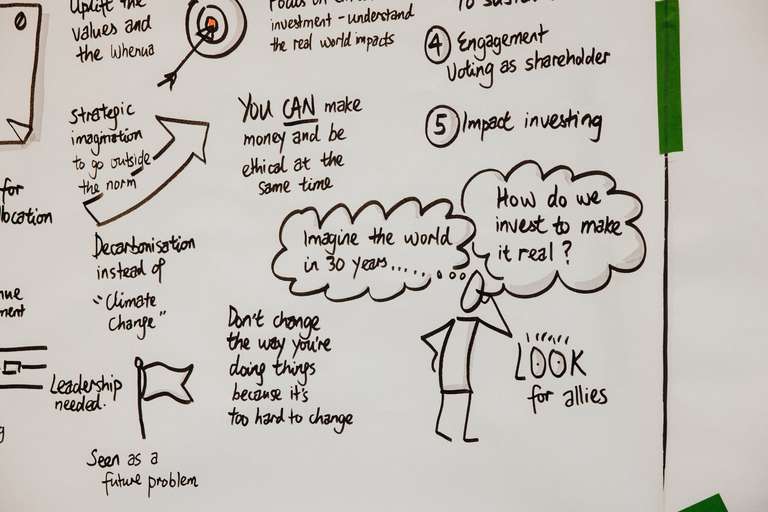 Uplift the
values and
the Whenua
investment - understand
the real world impacts
④ Engagement
Voting as shareholder
Strategic
imagination
to go outside
the norm
YOU CAN make
money and be
ethical at the
same time
⑤ Impact investing
for
location
Imagine the world
in 30 years......
How do we
invest to make
it real?
Decarbonisation
instead of
"Climate
Change"
Don't change
the way you're
doing things
because it's
too hard to change
Leadership
needed.
LOOK
for allies
Seen as a
future problem